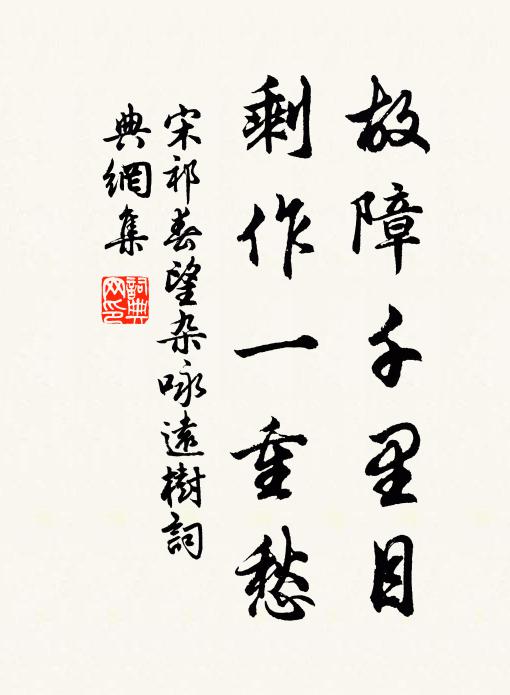 故障千里目
剩作一重愁
宋祁春望杂咏遠樹詞
典網集
詞典
网印